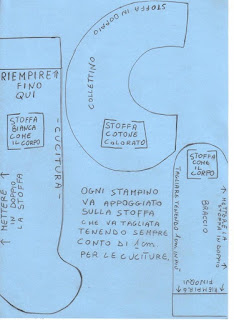 STOFFA IN DOPPIO
COLLETTINO
STOFFA
COTONE
COLORATO
RIEMPIRE
FINO
QUI
STOFFA
BIANCA
COME
IL CORPO
- CUCITURA -
METTERE
IN DOPPIO
LA STOFFA
OGNI STAMPINO
VA APPOGGIATO
SULLA STOFFA
CHE VA TAGLIATA
TENENDO SEMPRE
CONTO DI 1cm.
PER LE CUCITURE.
STOFFA
COME
IL
CORPO
BRACCIO
TAGLIARE TENENDO 1cm IN PIÙ
METTERE LA
STOFFA IN DOPPIO
RIEMPIRE
FINOQUI